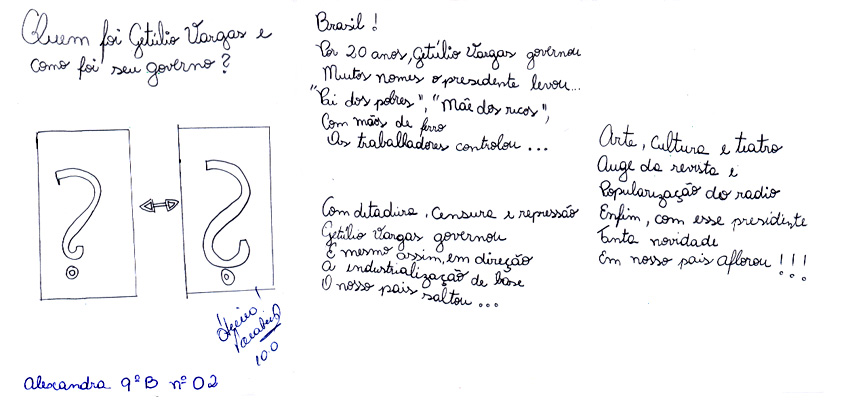 Quem foi Getúlio Vargas e
como foi seu governo?
?
?
Ótimo!
Parabéns
10.0
Alexandra 9ºB nº 02
Brasil!
Por 20 anos, Getúlio Vargas governou
Muitos nomes o presidente levou...
"Pai dos pobres", "Mãe dos ricos",
Com mãos de ferro
Os trabalhadores controlou...
Com ditadura, censura e repressão
Getúlio Vargas governou
E mesmo assim, em direção
a industrialização de base
O nosso país saltou...
Arte, Cultura e teatro
Auge da revista e
Popularização do radio
Enfim, com esse presidente
Tanta novidade
Em nosso país aflorou!!!